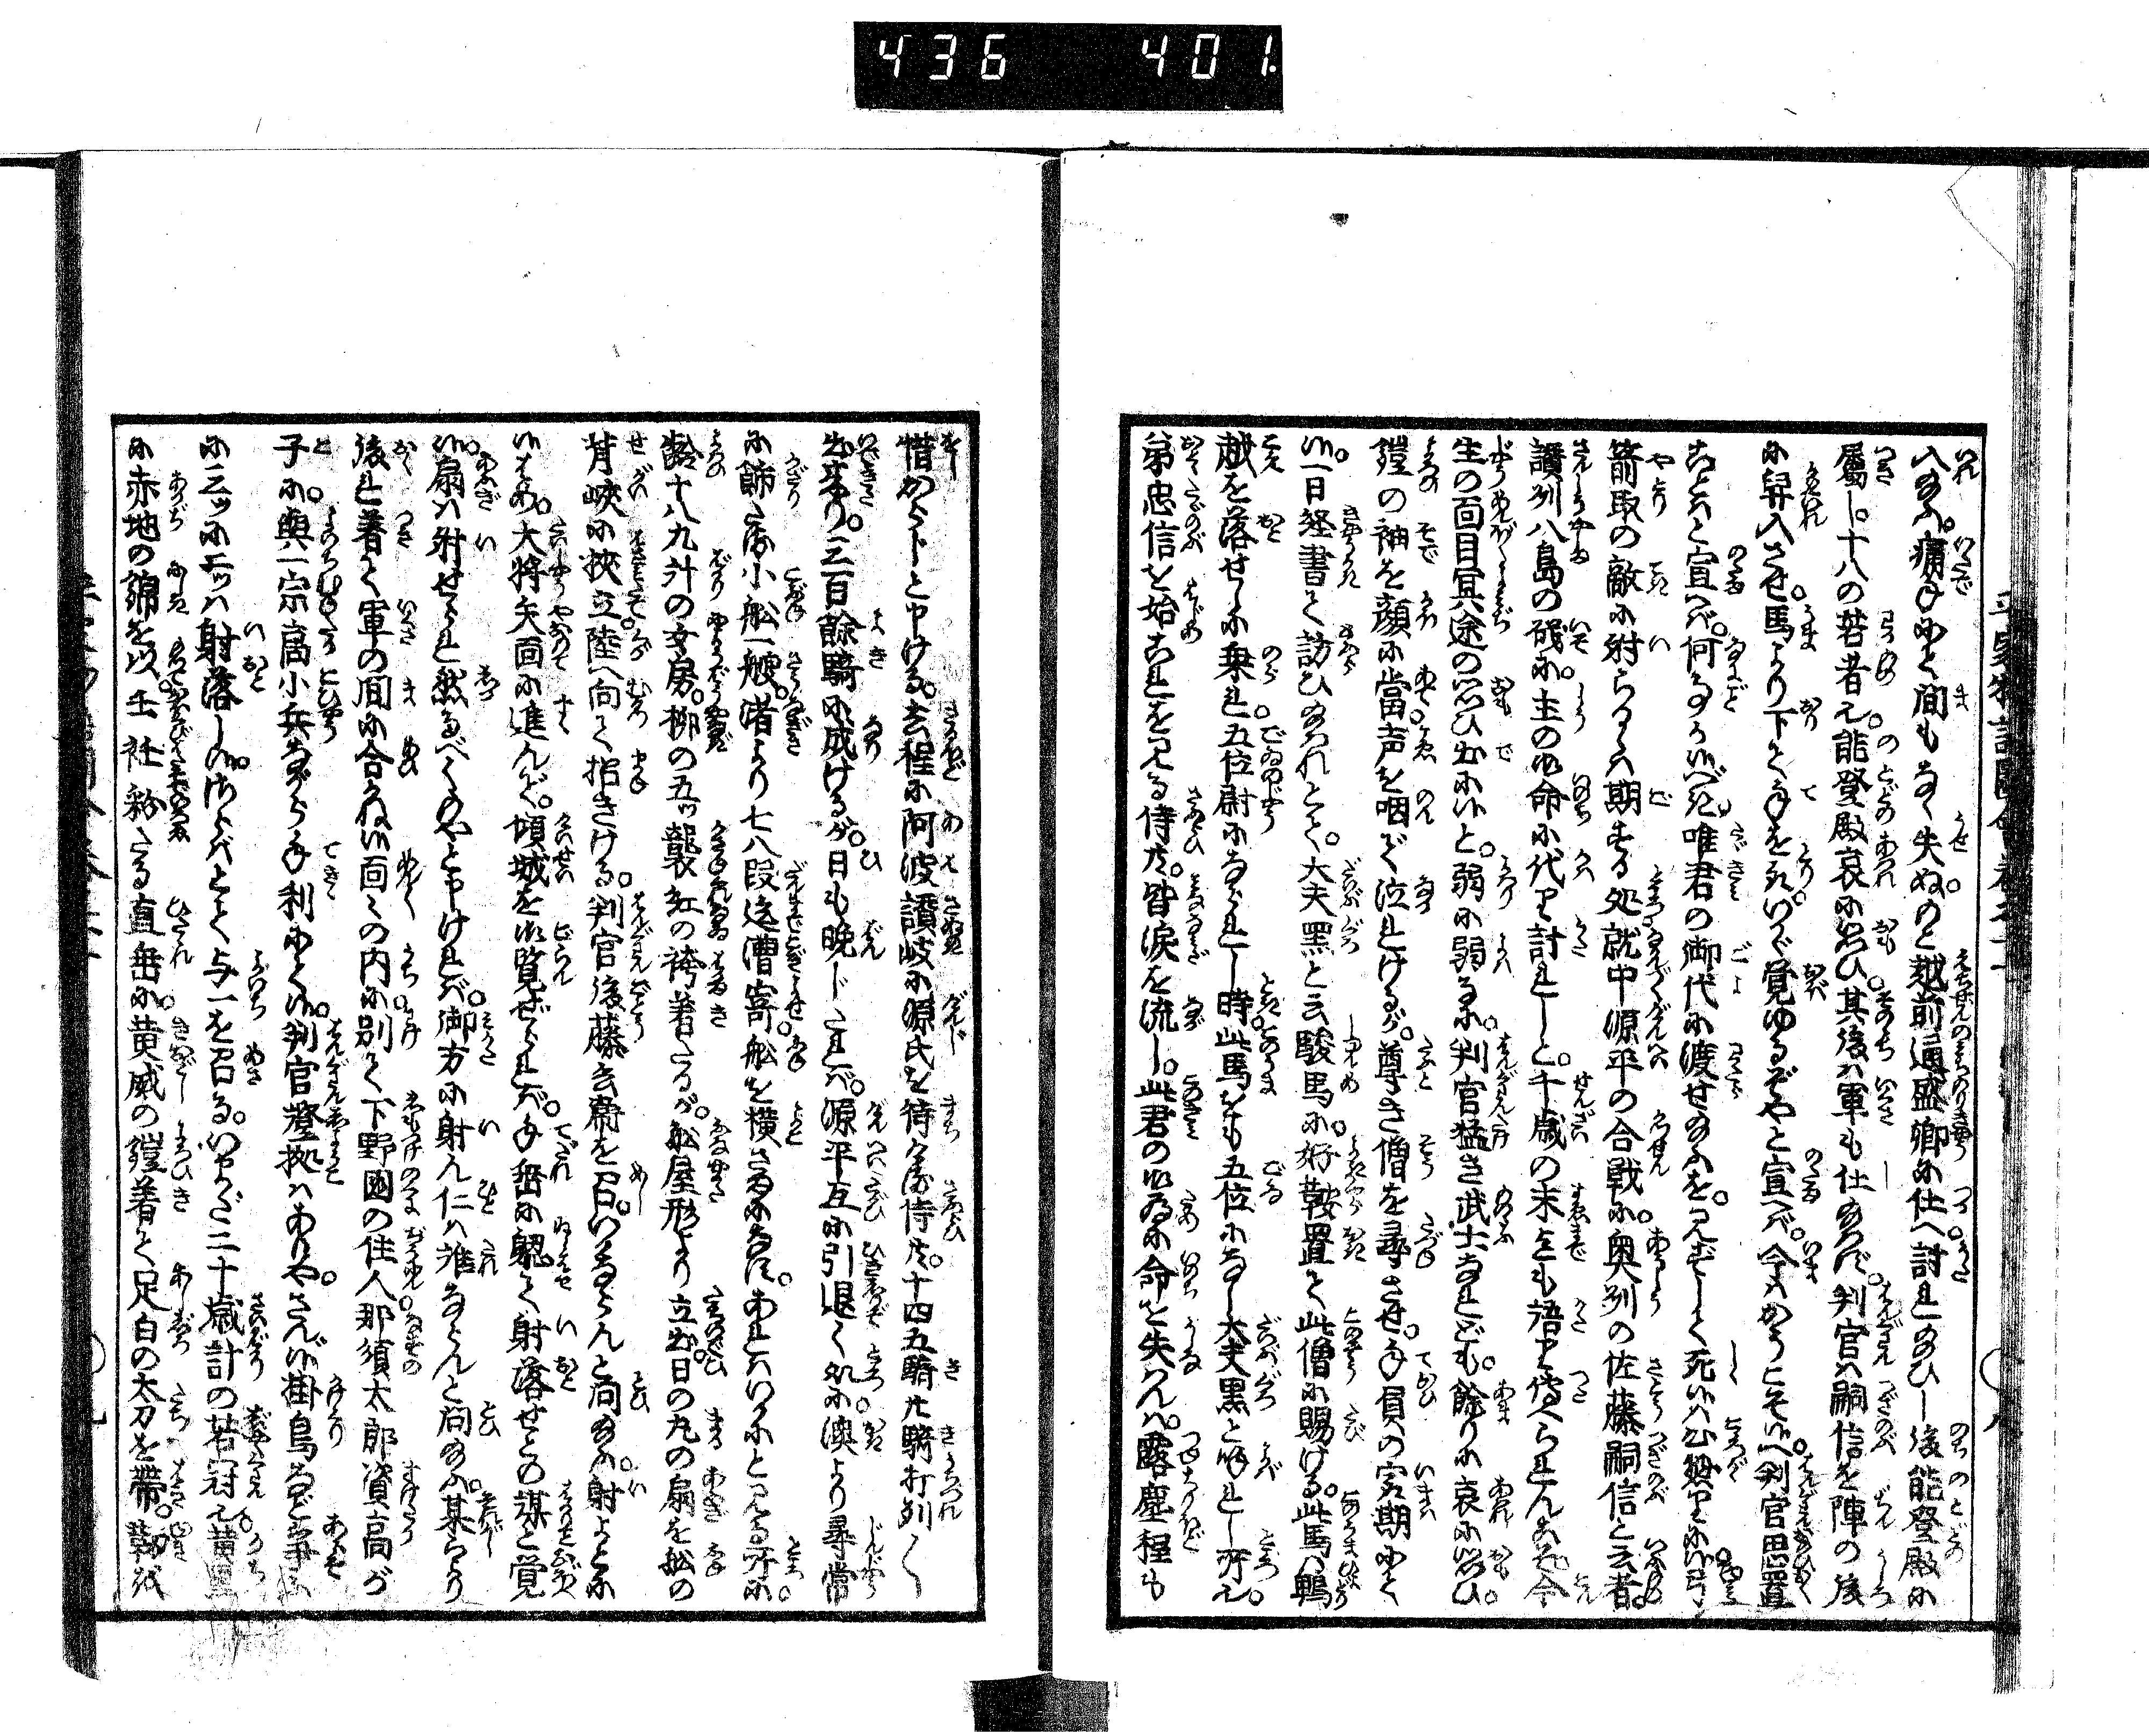 436 401
入給ふ。痛手にて間もなく失ぬ。のと越前通盛卿に仕へ討れ給ひし後能登殿に
屬し。十八の若者也。能登殿哀に思ひ。其後は軍も仕給はず。判官は嗣信を陣の後
に舁入させ。馬より下て手を取。いかゞ覚ゆるぞやと宣へば。今はかうとこそ候へ。判官思置
ことはと宣へば。何事か候べき。唯君の御代に渡せ給ふを。見ずして死候は心懸りに候。弓
箭取の敵に射らるゝは期する処就中源平の合戦に。奥州の佐藤嗣信と云者。
讃州八島の磯に。主の御命に代り討れしと。千歳の末迄も語り傳へられんこと今
生の面目冥途の思ひ出に候と。弱に弱るに。判官猛き武士なれども。餘りに哀に思ひ。
鎧の袖を顔に當。声を咽で泣れけるが。尊き僧を尋させ。手負の寔期にて
候。一日経書て訪ひ給はれとて。大夫黒と云駿馬に。好鞍置て此僧に賜ける。此馬は鵯
越を落せしに乗れ。五位尉になられし時。此馬をも五位になし大夫黒と呼れし所也。
弟忠信を始これを見る侍共。皆涙を流し。此君の御為に命を失はんは。露塵程も
惜からじと申ける。去程に阿波讃岐に源氏を待ける侍共。十四五騎廿騎打列〳〵
出来り。三百餘騎に成けるが。日も晩じければ。源平互に引退く処に澳より尋常
に飾たる小舩一艘。渚より七八段迄漕寄。舩を横さまになす。あれはいかにと見る所に。
齢十八九計の女房。柳の五ッ襲紅の袴着たるが。舩屋形より立出。日の丸の扇を舩の
背峽に挾立陸へ向て招きける。判官後藤兵衛を召。いかならんと問給ふ。射よとに
候はめ。大将矢面に進んで。傾城を御覧ぜられば。手垂に覘て射落せとの謀と覚
候。扇は射せられ然るべくもやと申ければ。御方に射ん仁は誰ならんと問給ふ。某らより
後れ着て軍の間に合かね候面々の内に。別て下野國の住人那須太郎資高が
子に。與一宗高小兵ながら手利にて候。判官證拠はありや。さん候掛鳥など爭ふ
に三ッに二ッは射落し候。さらばとて与一を召る。いまだ二十歳計の若冠也。黄
に赤地の錦を以。壬社粉たる直垂に。黄威の鎧着て足白の太刀を帯。